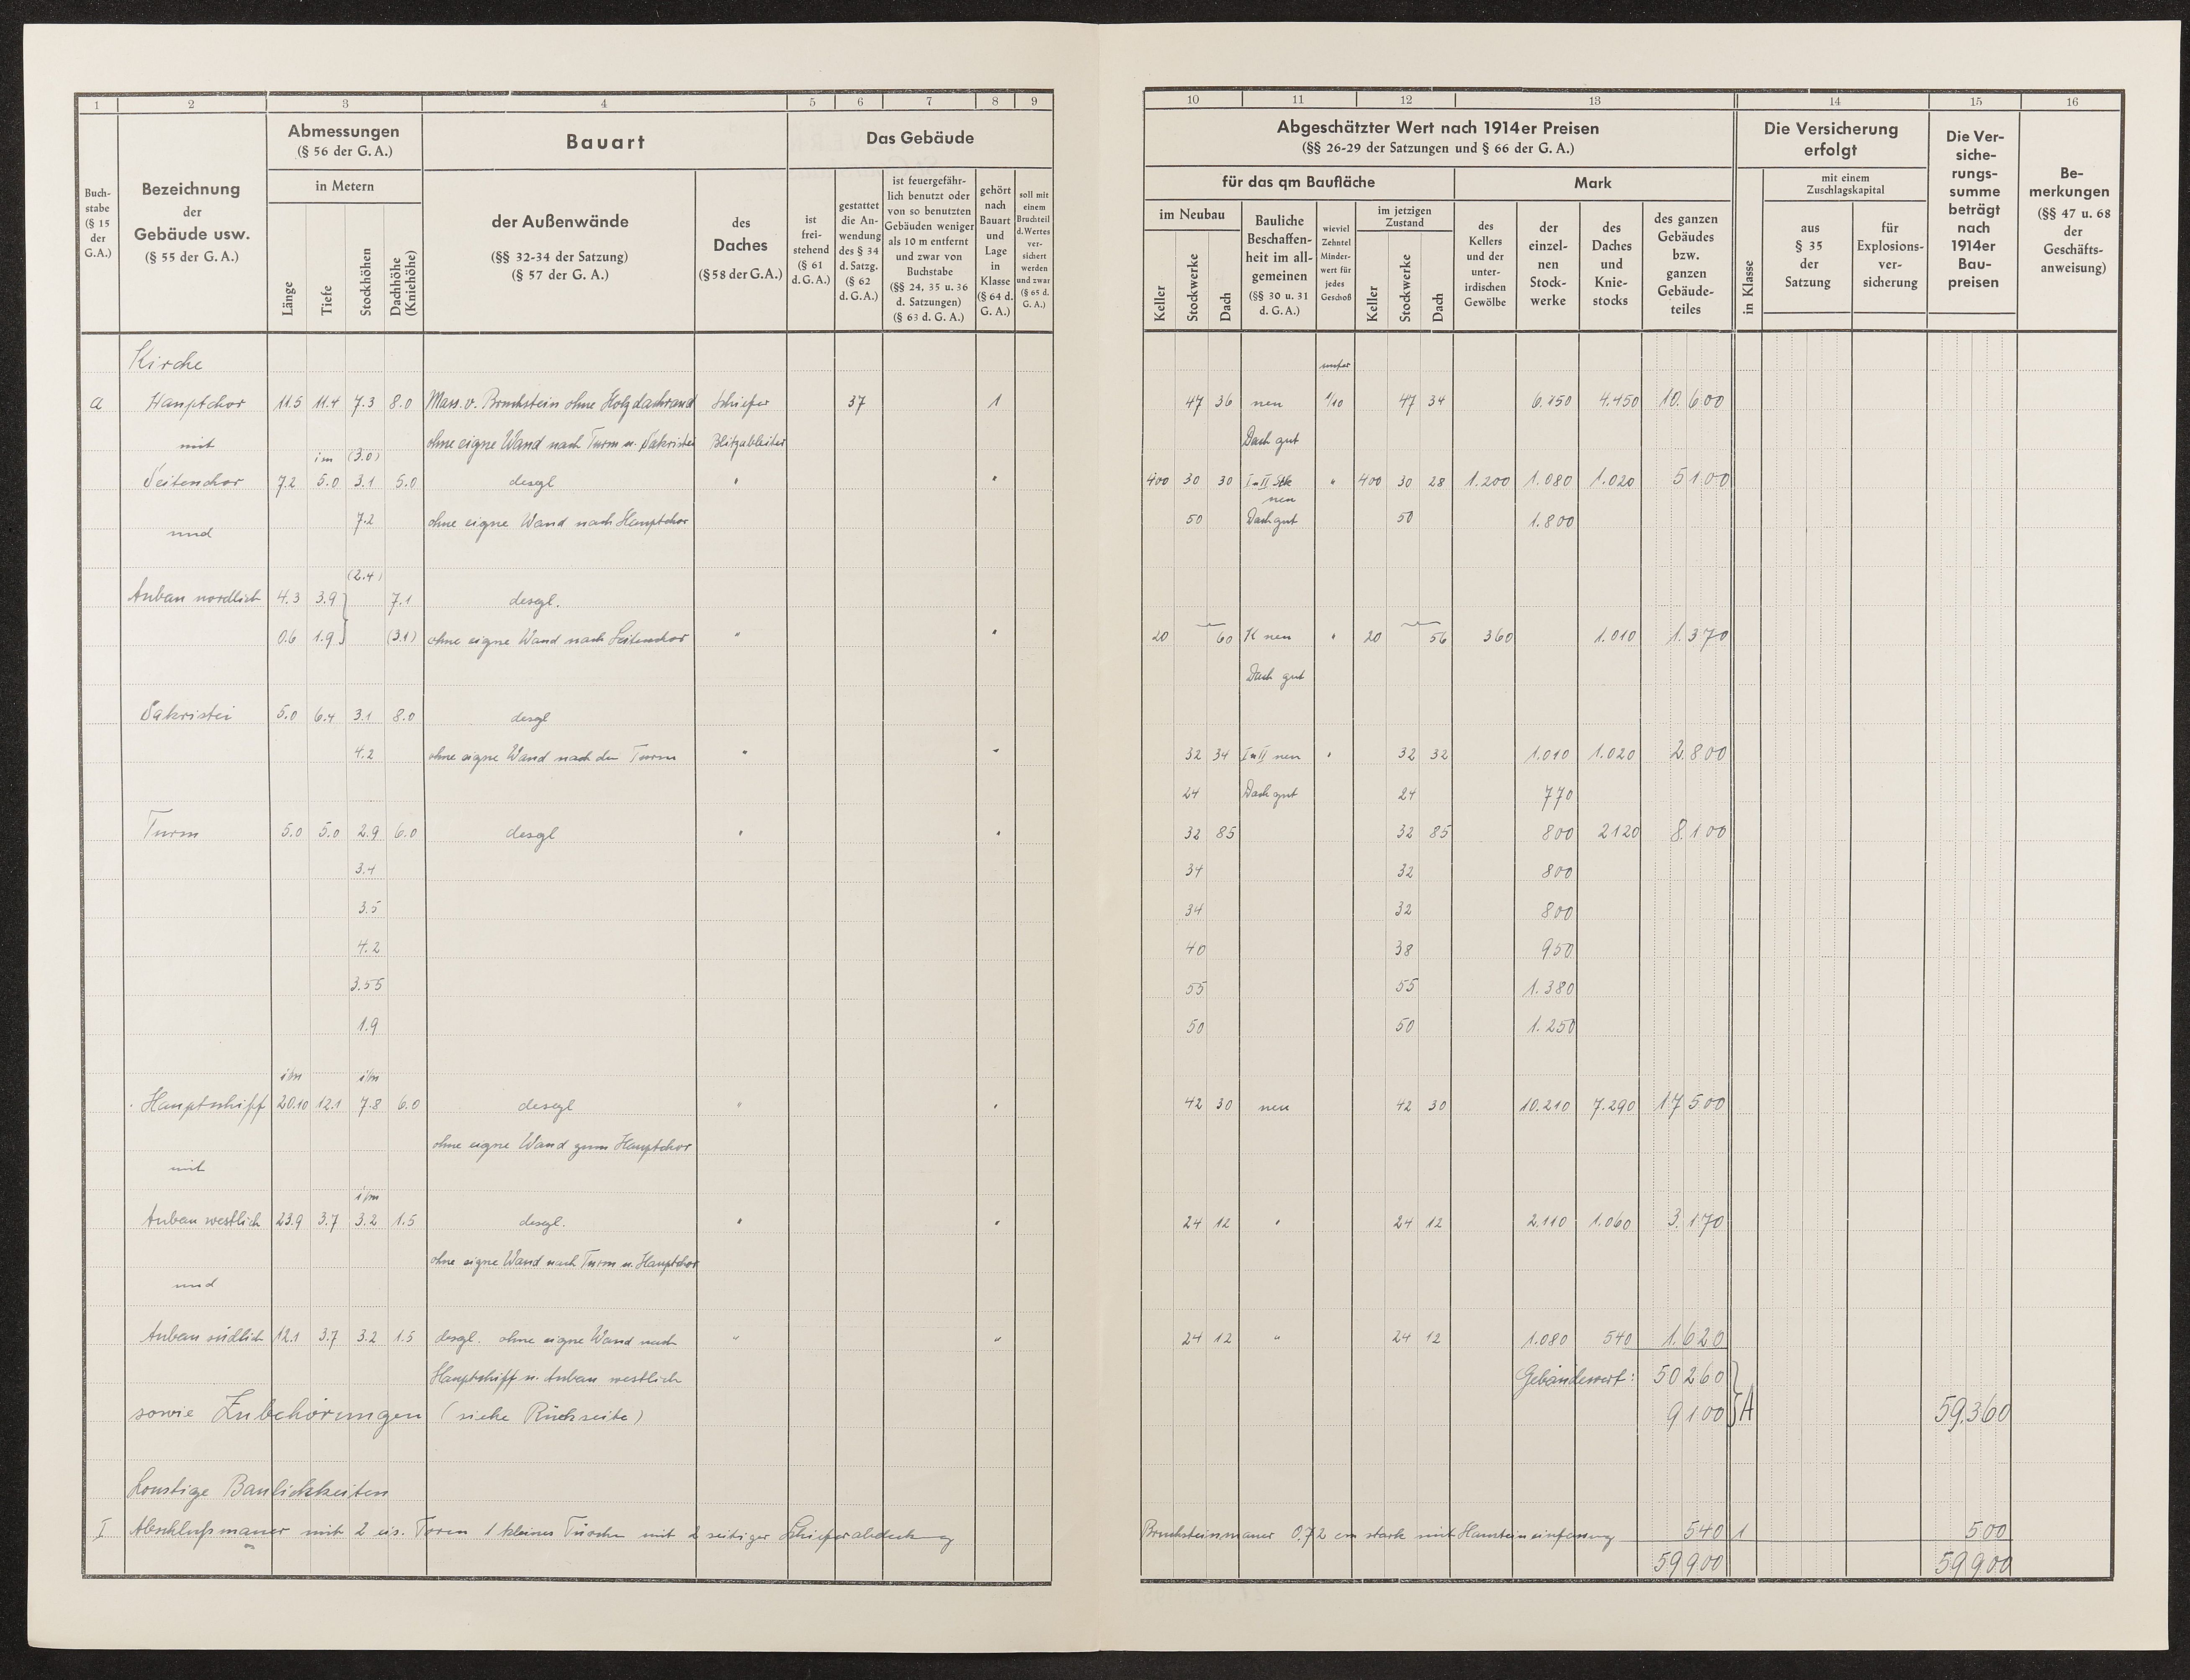 1 2 3 4 5 6 7 8 9
Buch-
stabe
(§ 15
der
G.A.)
Bezeichnung
der
Gebäude usw.
(§ 55 der G. A.)
Abmessungen
(§ 56 der G. A.)
in Metern
Länge
Tiefe
Stockhöhen
Dachhöhe
(Kniehöhe)
Bauart
der Außenwände
(§§ 32-34 der Satzung)
(§ 57 der G. A.)
des
Daches
(§ 58 der G. A.)
Das Gebäude
ist
frei-
stehend
(§ 61
d. G. A.)
gestattet
die An-
wendung
des § 34
d. Satzg.
(§ 62
d. G. A.)
ist feuergefähr-
lich benutzt oder
von so benutzten
Gebäuden weniger
als 10 m entfernt
und zwar von
Buchstabe
(§§ 24, 35 u. 36
d. Satzungen)
(§ 63 d. G. A.)
gehört
nach
Bauart
und
Lage
in
Klasse
(§ 64 d.
G. A.)
soll mit
einem
Bruchteil
d. Wertes
ver-
sichert
werden
und zwar
(§ 65 d.
G. A.)
Kirche
a Hauptchor 11.5 11.4 7.3 8.0 Mass. v. Bruchstein ohne Holzdachrand Schiefer 37 1
mit ohne eigne Wand nach Turm u. Sakristei Blitzableiter
im (3.0)
Seitenchor 7.2 5.0 3.1 5.0 desgl " "
7.2 ohne eigne Wand nach Hauptchor
und
(2.4)
Anbau nordlich 4.3 3.9 7.1 desgl.
0.6 1.9 (3.1) ohne eigne Wand nach Seitenchor " "
Sakristei 5.0 6.4 3.1 8.0 desgl
4.2 ohne eigne Wand nach den Turm " "
Turm 5.0 5.0 2.9 6.0 desgl " "
3.4
3.5
4.2
3.55
1.9
i/m i/m
Hauptschiff 20.10 12.1 7.8 6.0 desgl " "
ohne eigne Wand zum Hauptchor
mit
i/m
Anbau westlich 23.9 3.7 3.2 1.5 desgl. " "
ohne eigne Wand nach Turm u. Hauptchor
und
Anbau südlich 12.1 3.7 3.2 1.5 desgl. ohne eigne Wand nach " "
Hauptschiff u. Anbau westlich
sowie Zubehörungen (siehe Rückseite)
Sonstige Baulichkeiten
I Abschlußmauer mit 2 eis. Toren 1 kleines Türchen mit 2 seitiger Schieferabdeckung
10 11 12 13 14 15 16
Abgeschätzter Wert nach 1914er Preisen
(§§ 26-29 der Satzungen und § 66 der G. A.)
für das qm Baufläche
Mark
im Neubau
Keller
Stockwerke
Dach
Bauliche
Beschaffen-
heit im all-
gemeinen
(§§ 30 u. 31
d. G. A.)
wieviel
Zehntel
Minder-
wert für
jedes
Geschoß
im jetzigen
Zustand
Keller
Stockwerke
Dach
des
Kellers
und der
unter-
irdischen
Gewölbe
der
einzel-
nen
Stock-
werke
des
Daches
und
Knie-
stocks
des ganzen
Gebäudes
bzw.
ganzen
Gebäude-
teiles
Die Versicherung
erfolgt
in Klasse
mit einem
Zuschlagskapital
aus
§ 35
der
Satzung
für
Explosions-
ver-
sicherung
Die Ver-
siche-
rungs-
summe
beträgt
nach
1914er
Bau-
preisen
Be-
merkungen
(§§ 47 u. 68
der
Geschäfts-
anweisung)
unter
47 36 neu 1/10 47 34 6.150 4.450 10.600
Dach gut
400 30 30 I u II Stk " 400 30 28 1.200 1.080 1.020 5100
neu
50 Dach gut 50 1.800
20 60 K neu " 20 56 360 1.010 1.370
Dach gut
32 34 I u II neu " 32 32 1.010 1.020 2.800
24 Dach gut 24 770
32 85 32 85 800 2120 8.100
34 32 800
34 32 800
40 38 950
55 55 1.380
50 50 1.250
42 30 neu 42 30 10.210 7.290 17500
24 12 " 24 12 2.110 1.060 3.170
24 12 " 24 12 1.080 540 1.620
Gebäudewert: 50260
9100 A 59.360
Bruchsteinmauer 0,72 cm stark mit Hausteineinfassung 540 1 500
59900 59900